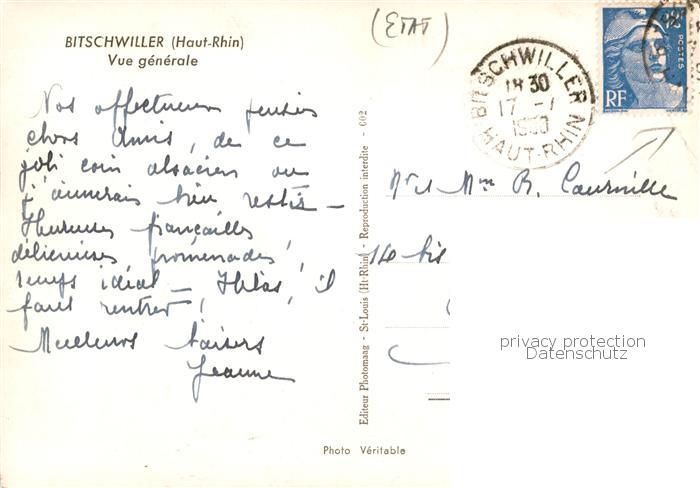 BITSCHWILLER (Haut-Rhin)
Vue générale
(ETAT)
BITSCHWILLER
18 30
17 -
1950
HAUT-RHIN
POSTES
RF
Nos affectueuses pensées
chers Amis, de ce
joli coin alsacien où
j'aimerais bien rester –
Heureuses fiançailles,
délicieuses promenades,
temps idéal – Hélas, il
faut rentrer!
Meilleurs baisers
Jeanne
Editeur Photomaag - St-Louis (Ht-Rhin) - Reproduction interdite - 602
Mr et Mme R. Courville
14 bis
privacy protection
Datenschutz
Photo Véritable